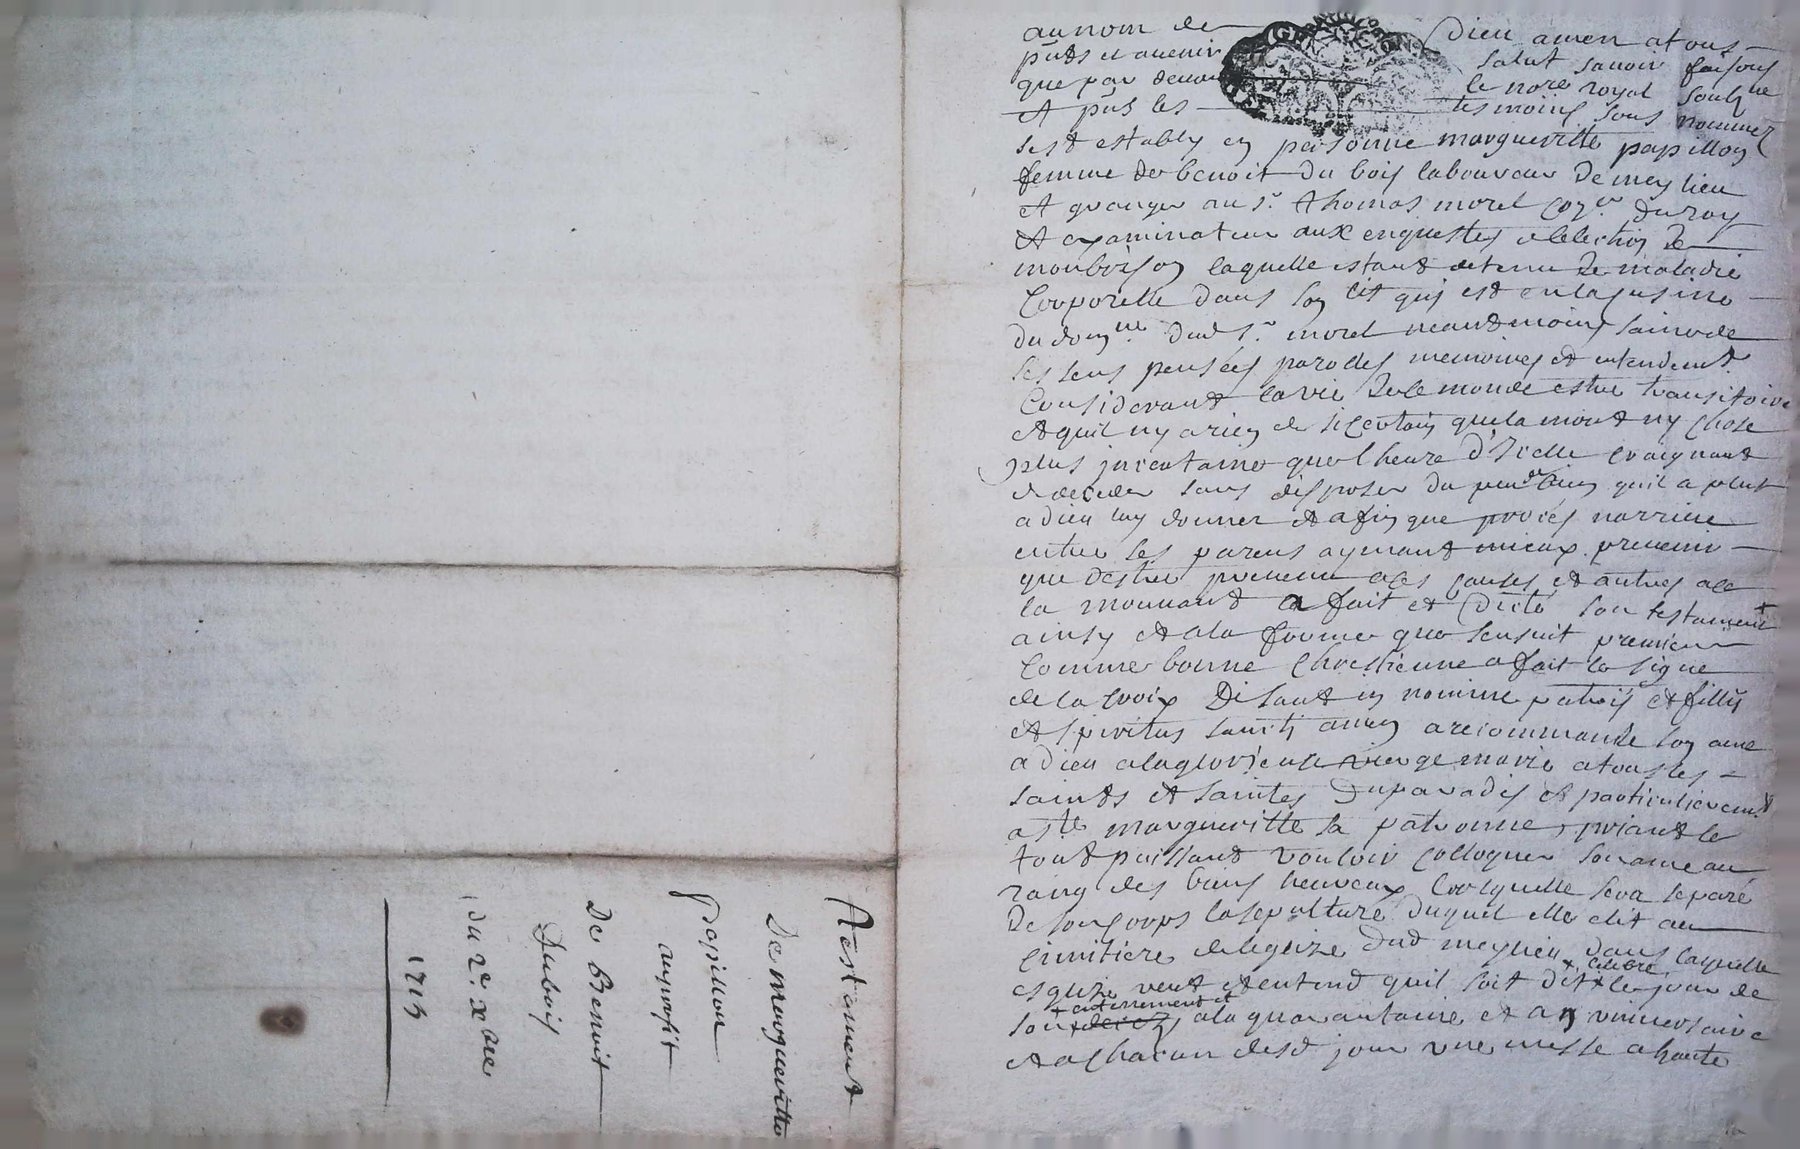 au nom de Dieu amen a tous
pnts et auenir salut sauoir faisons
que par deuant le nore royal soubne
et pns les tesmoins sous nommez
sest estably en personne margueritte papillon
femme de benoit du bois laboureur de meylieu
et granger au sr. thomas morel coner du roy
et examinateur aux enquestes election de
monbrison laquelle estant detenue de maladie
Corporelle dans son lit quy est en la cusine
du domne dud sr morel neantmoins saine de
ses sens pensées parolles memoires et entendemt
Considerant la vie de ce monde estre transitoire
et quil ny a rien de si certain que la mort ny chose
plus incertaine que lheure d'icelle craignant
de deceder sans disposer du peu de bien quil a pleut
a dieu luy donner et afin que procés narriue
entre ses parens aymant mieux preuenir
que destre preuenue a ces causes et autres a ce
la mouuant a fait et dicté son testament
ainsy et a la forme que sensuit premierement
Comme bonne chrestienne a fait le signe
de la croix disant in nomine patris et fillij
et spiritus sancti amen a recommandé son ame
a dieu a la glorieuse vierge marie a tous les
saints et saintes du paradis et particulierement
a ste margueritte sa patronne, priant le
tout puissant vouloir colloquer son ame au
rang des bien heureux lorsquelle sera separé
de son corps la sepulture duquel elle elit au
cimitiere de leglize dud meylieu dans laquelle
esglize veut et entend quil soit dit + celebre le jour de
son + enterrement et a la quarantaine et anniuersaire
et a chacun desd jour une messe a haute
Testament
De margueritte
Papillon
au profit
De Benoit
Dubois
du 2e. xbre
1715